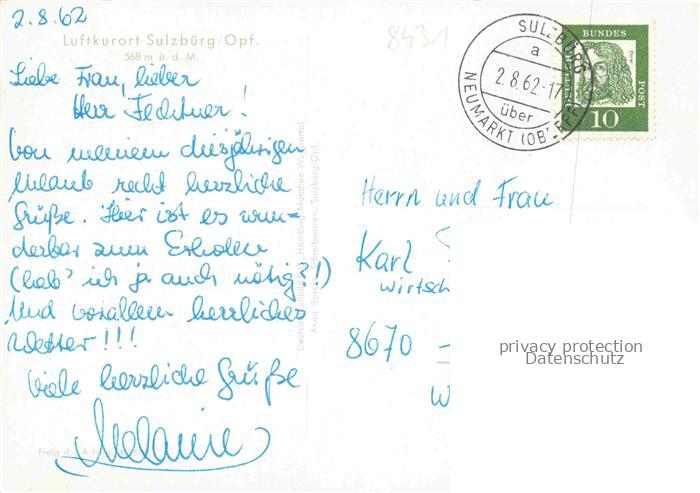 2.8.62
Luftkurort Sulzbürg/Opf.
568 m ü. d. M.
8431
SULZBÜRG
a
2.8.62-17
über
NEUMARKT (OBERPF)
DEUTSCHE
BUNDES
POST
10
Liebe Frau, lieber
Herr Fechtner!
Von meinem diesjährigen
Urlaub recht herzliche
Grüße. Hier ist es wun-
derbar zum Erholen
(hab' ich ja auch nötig?!)
Und vorallem herrliches
Wetter!!!
Viele herzliche Grüße
Melanie
Herrn und Frau
Karl
Wirtsch
8670 -
W
privacy protection
Datenschutz